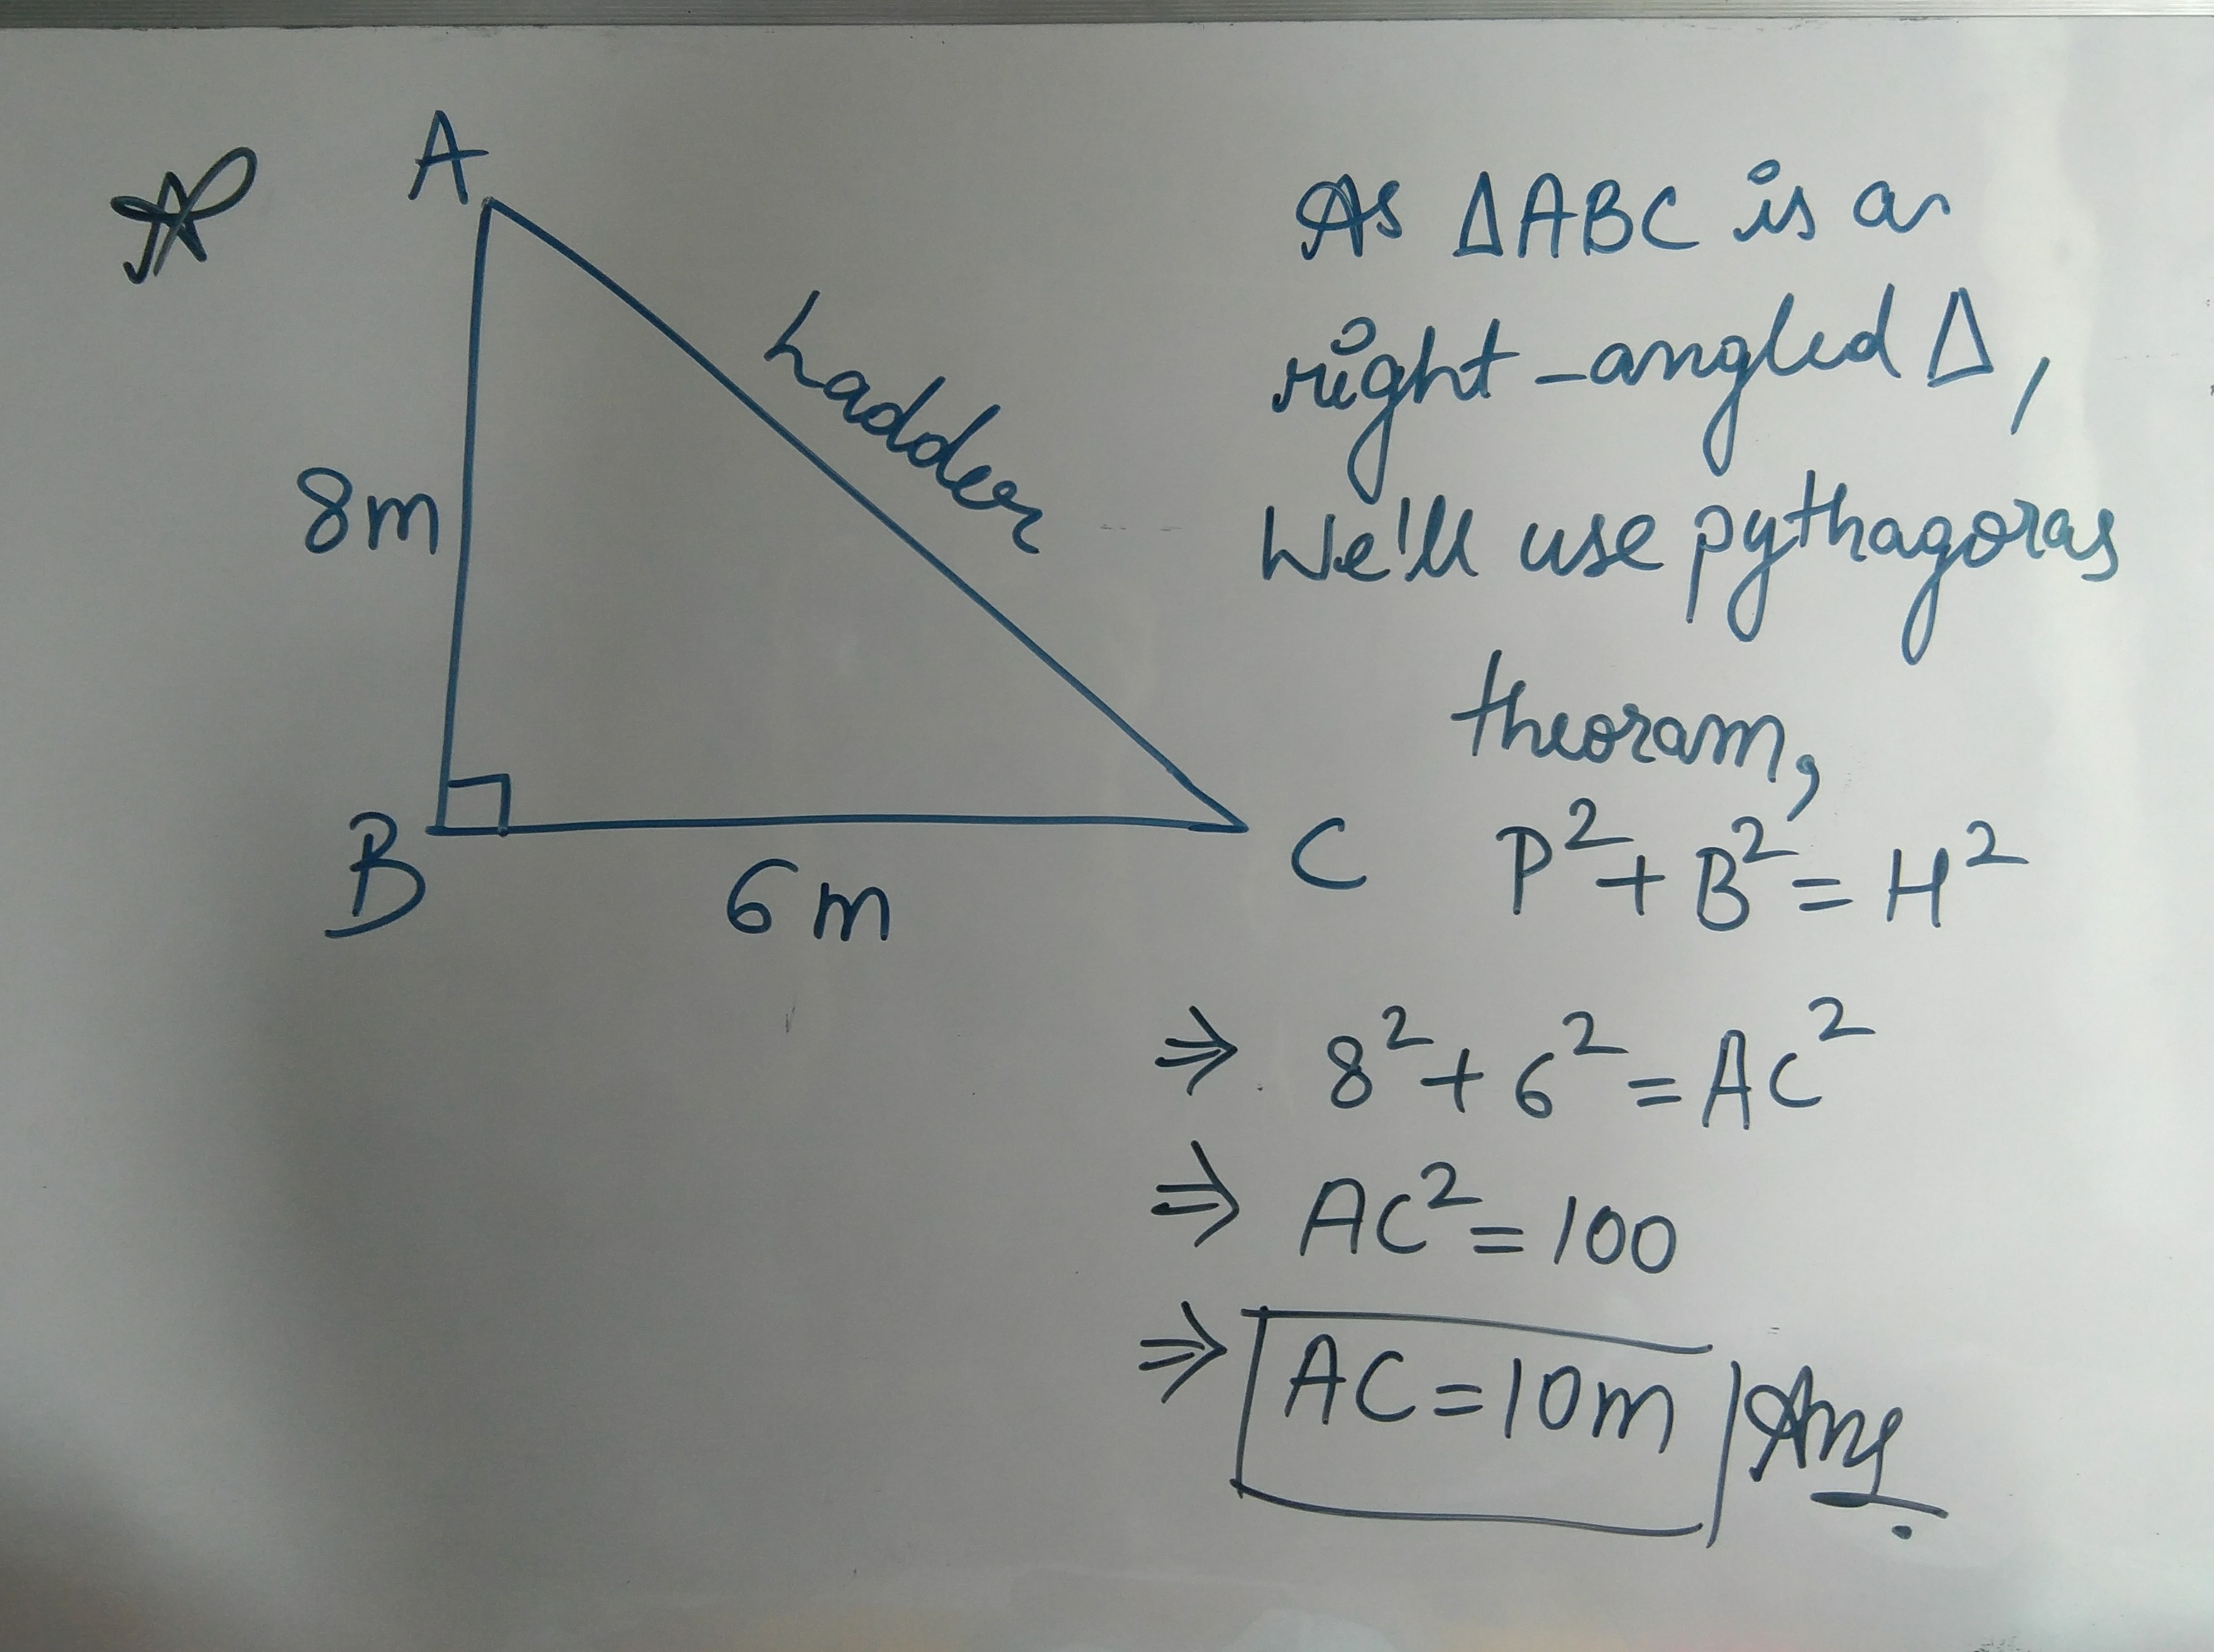 A
8m
Ladder
B
6m
C
As ΔABC is a
right-angled Δ,
We'll use pythagoras
theoram,
P² + B² = H²
⇒ 8² + 6² = AC²
⇒ AC² = 100
⇒ AC = 10m Ans